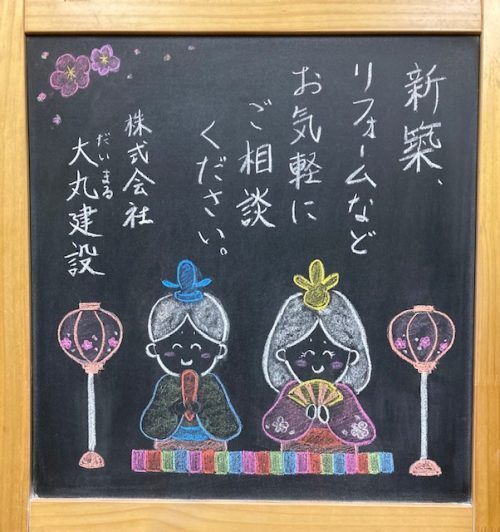 新築、
リフォームなど
お気軽に
ご相談
ください。
株式会社
だいまる
大丸建設